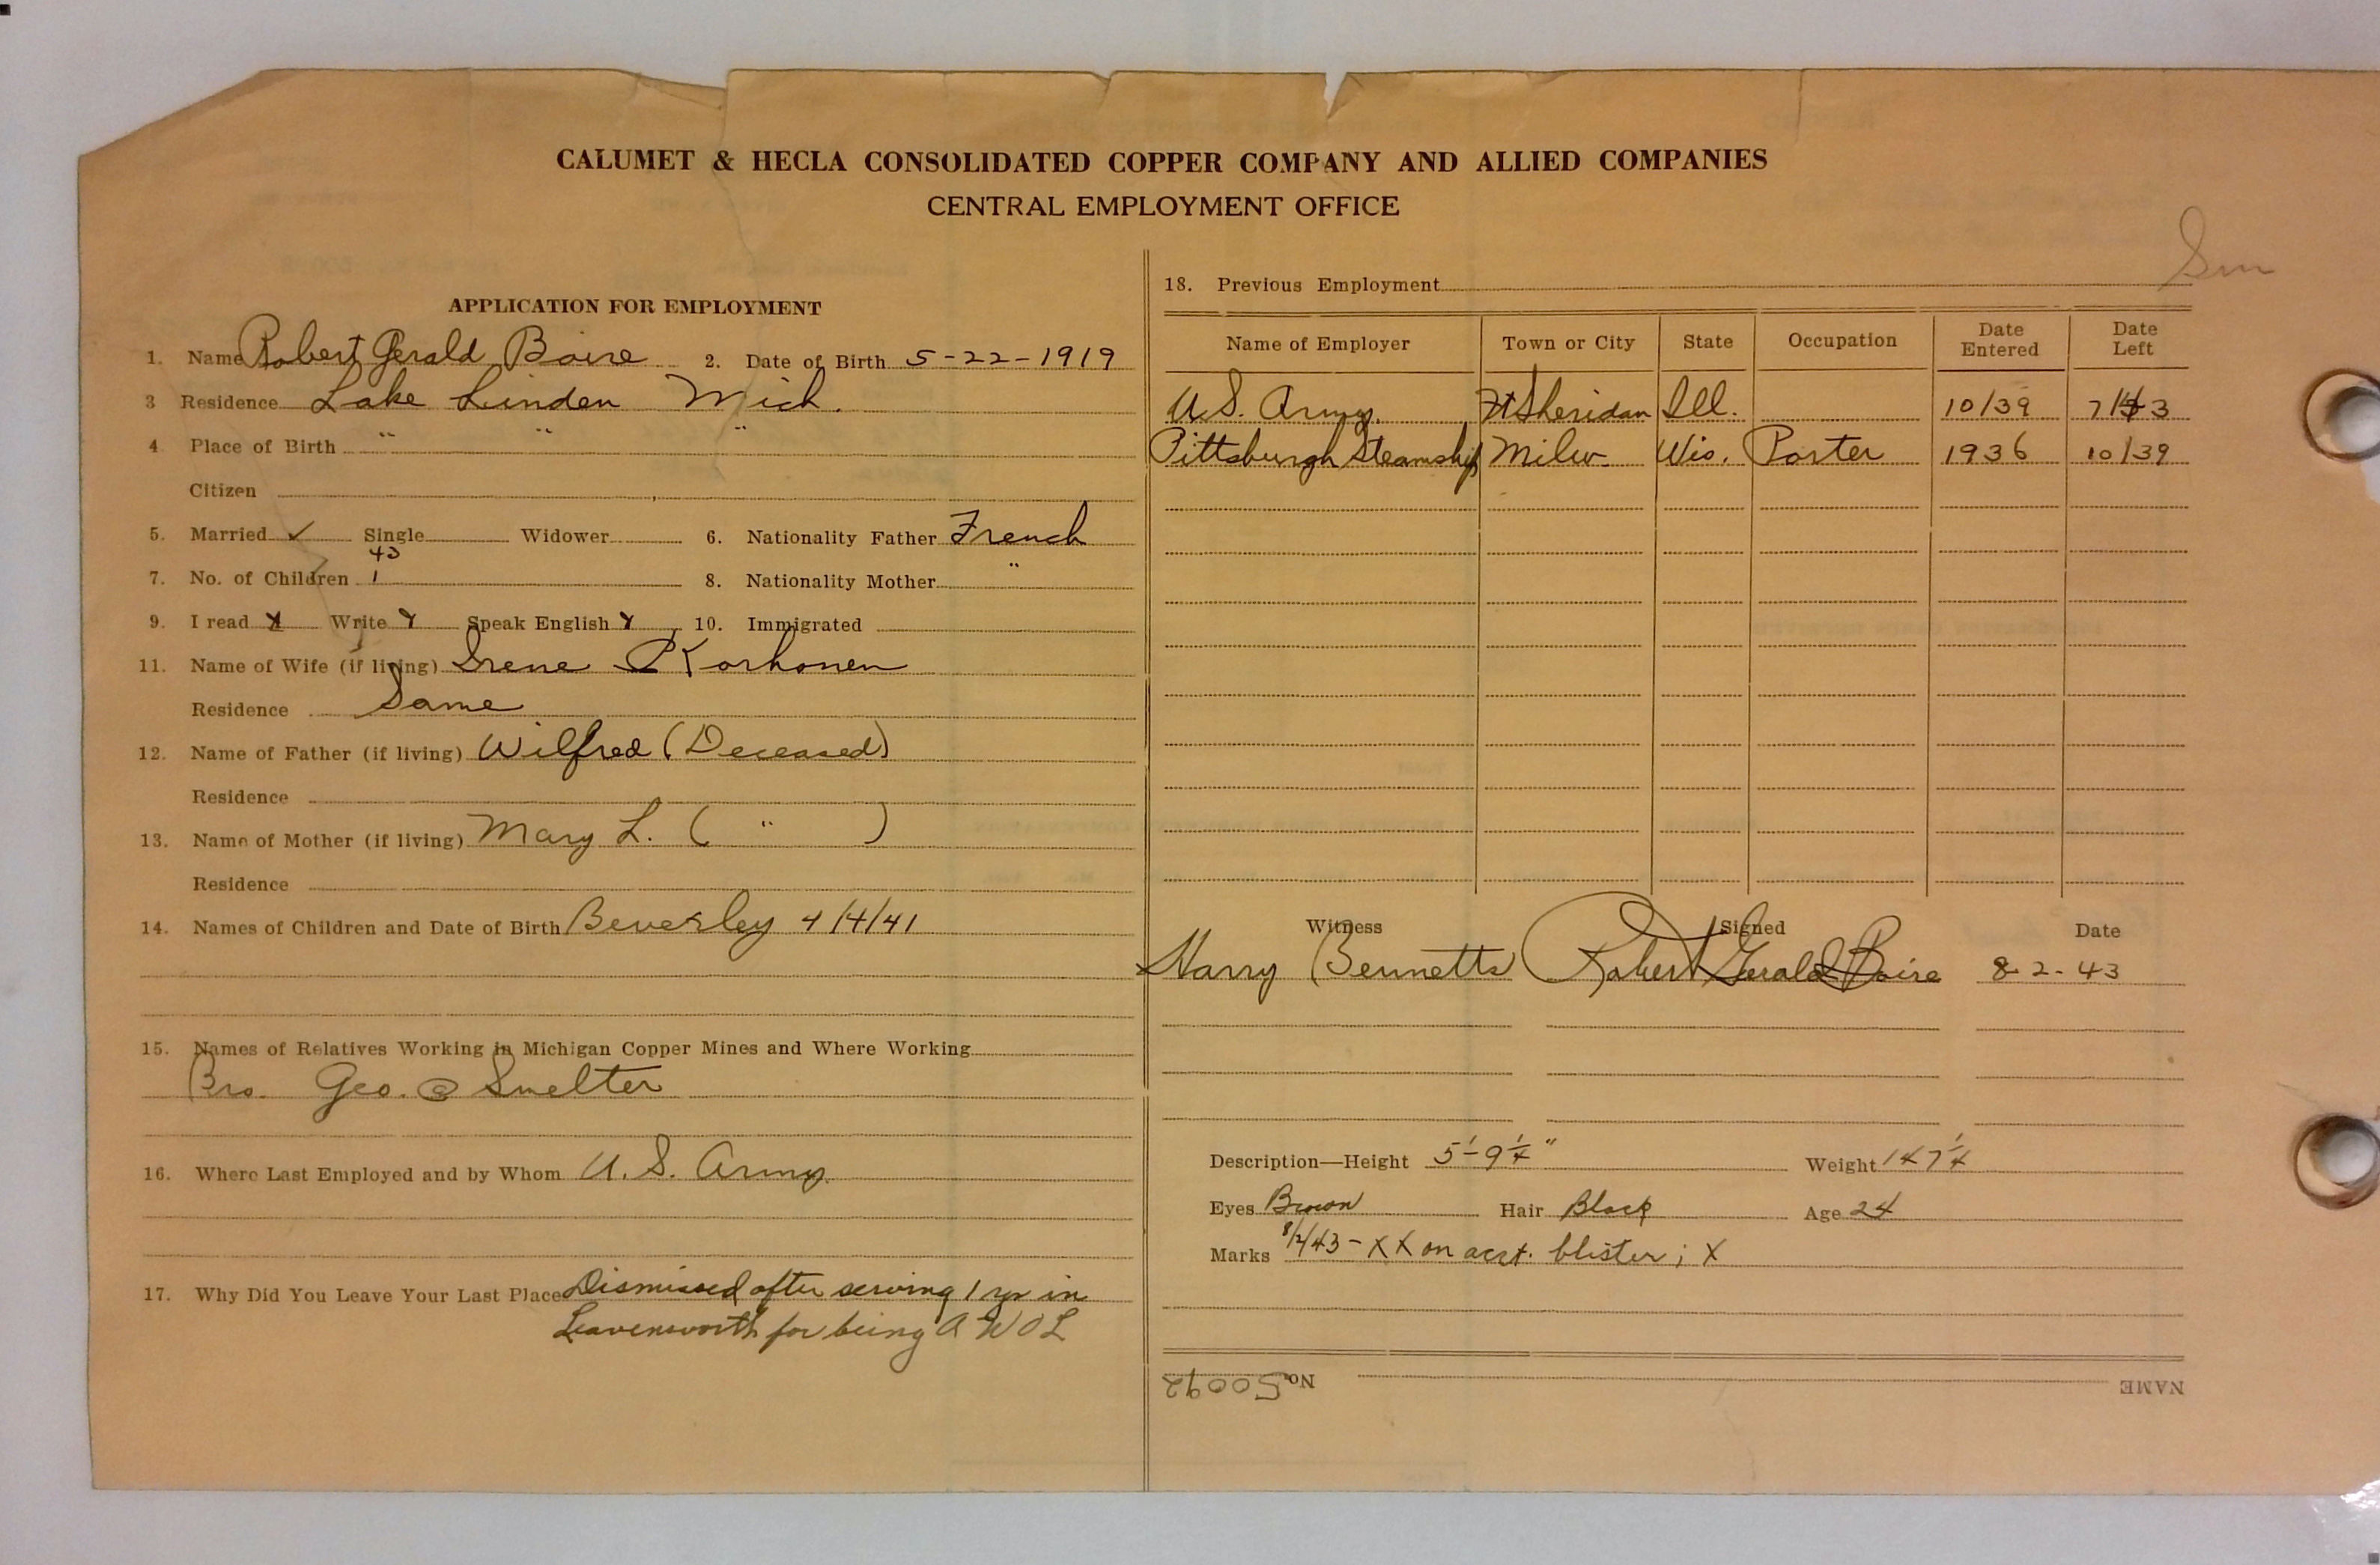 CALUMET & HECLA CONSOLIDATED COPPER COMPANY AND ALLIED COMPANIES
CENTRAL EMPLOYMENT OFFICE
APPLICATION FOR EMPLOYMENT
1. Name Robert Gerald Boire 2. Date of Birth 5-22-1919
3 Residence Lake Linden Mich.
4 Place of Birth " " "
Citizen
5. Married ✓ Single Widower 6. Nationality Father French
43
7. No. of Children 1 8. Nationality Mother "
9. I read X Write Y Speak English Y 10. Immigrated
11. Name of Wife (if living) Irene P Korhonen
Residence Same
12. Name of Father (if living) Wilfred (Deceased)
Residence
13. Name of Mother (if living) Mary L. ( " )
Residence
14. Names of Children and Date of Birth Beverley 4/4/41
15. Names of Relatives Working in Michigan Copper Mines and Where Working
Bro. Geo. @ Smelter
16. Where Last Employed and by Whom U.S. Army
17. Why Did You Leave Your Last Place Dismissed after serving 1 yr in
Leavensworth for being A W O L
18. Previous Employment
Name of Employer Town or City State Occupation Date Entered Date Left
U.S. Army Ft Sheridan Ill. 10/39 7/43
Pittsburgh Steamship Milw. Wis. Porter 1936 10/39
Witness Signed Date
Harry Bennetts Robert Gerald Boire 8-2-43
Description—Height 5'-9¼" Weight 147¼
Eyes Brown Hair Black Age 24
Marks 8/2/43 - XX on acct. blister; X
No. 50092 NAME